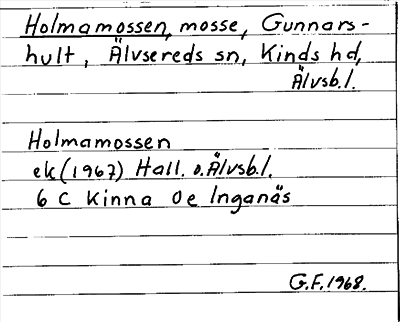 Holmamossen, mosse, Gunnars-
hult, Älvsereds sn, Kinds hd,
Älvsb.l.
Holmamossen
ek (1967) Hall. o. Älvsb.l.
6 C Kinna 0e Inganäs
G.F. 1968.